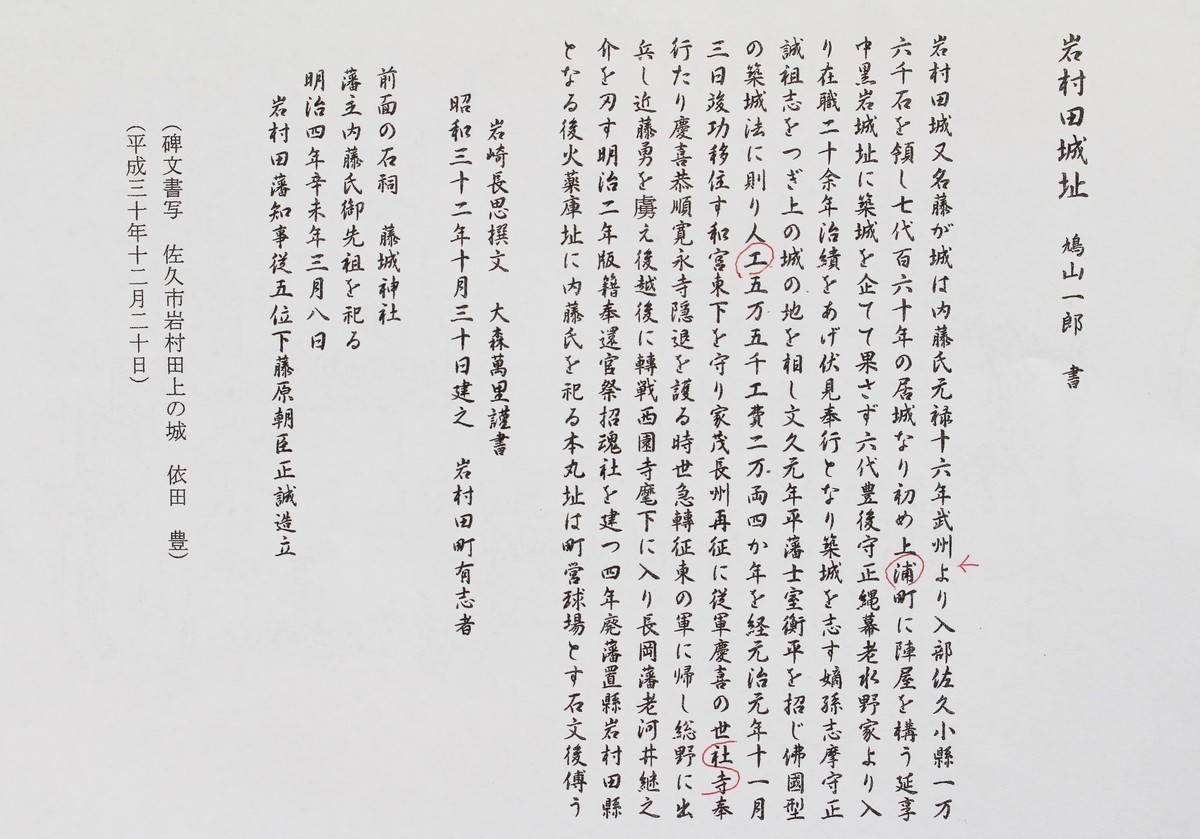 岩村田城址　鳩山一郎　書
岩村田城又名藤が城は内藤氏元禄十六年武州より入部佐久小縣一万
六千石を領し七代百六十年の居城なり初め上浦町に陣屋を構う延享
中黒岩城址に築城を企てて果さず六代豊後守正縄幕老水野家より入
り在職二十余年治績をあげ伏見奉行となり築城を志す嫡孫志摩守正
誠祖志をつぎ上の城の地を相し文久元年平藩士室衡平を招じ佛國型
の築城法に則り人工五万五千工費二万両四か年を経元治元年十一月
三日竣功移住す和宮東下を守り家茂長州再征に従軍慶喜の世社寺奉
行たり慶喜恭順寛永寺隠退を護る時世急轉征東の軍に帰し総野に出
兵し近藤勇を虜え後越後に轉戦西園寺麾下に入り長岡藩老河井継之
介を刃す明治二年版籍奉還官祭招魂社を建つ四年廃藩置縣岩村田縣
となる後火薬庫址に内藤氏を祀る本丸址は町営球場とす石文後傳う
岩崎長思撰文　大森萬里謹書
昭和三十二年十月三十日建之　岩村田町有志者
前面の石祠　藤城神社
藩主内藤氏御先祖を祀る
明治四年辛未年三月八日
岩村田藩知事従五位下藤原朝臣正誠造立
（碑文書写　佐久市岩村田上の城　依田　豊）
（平成三十年十二月二十日）